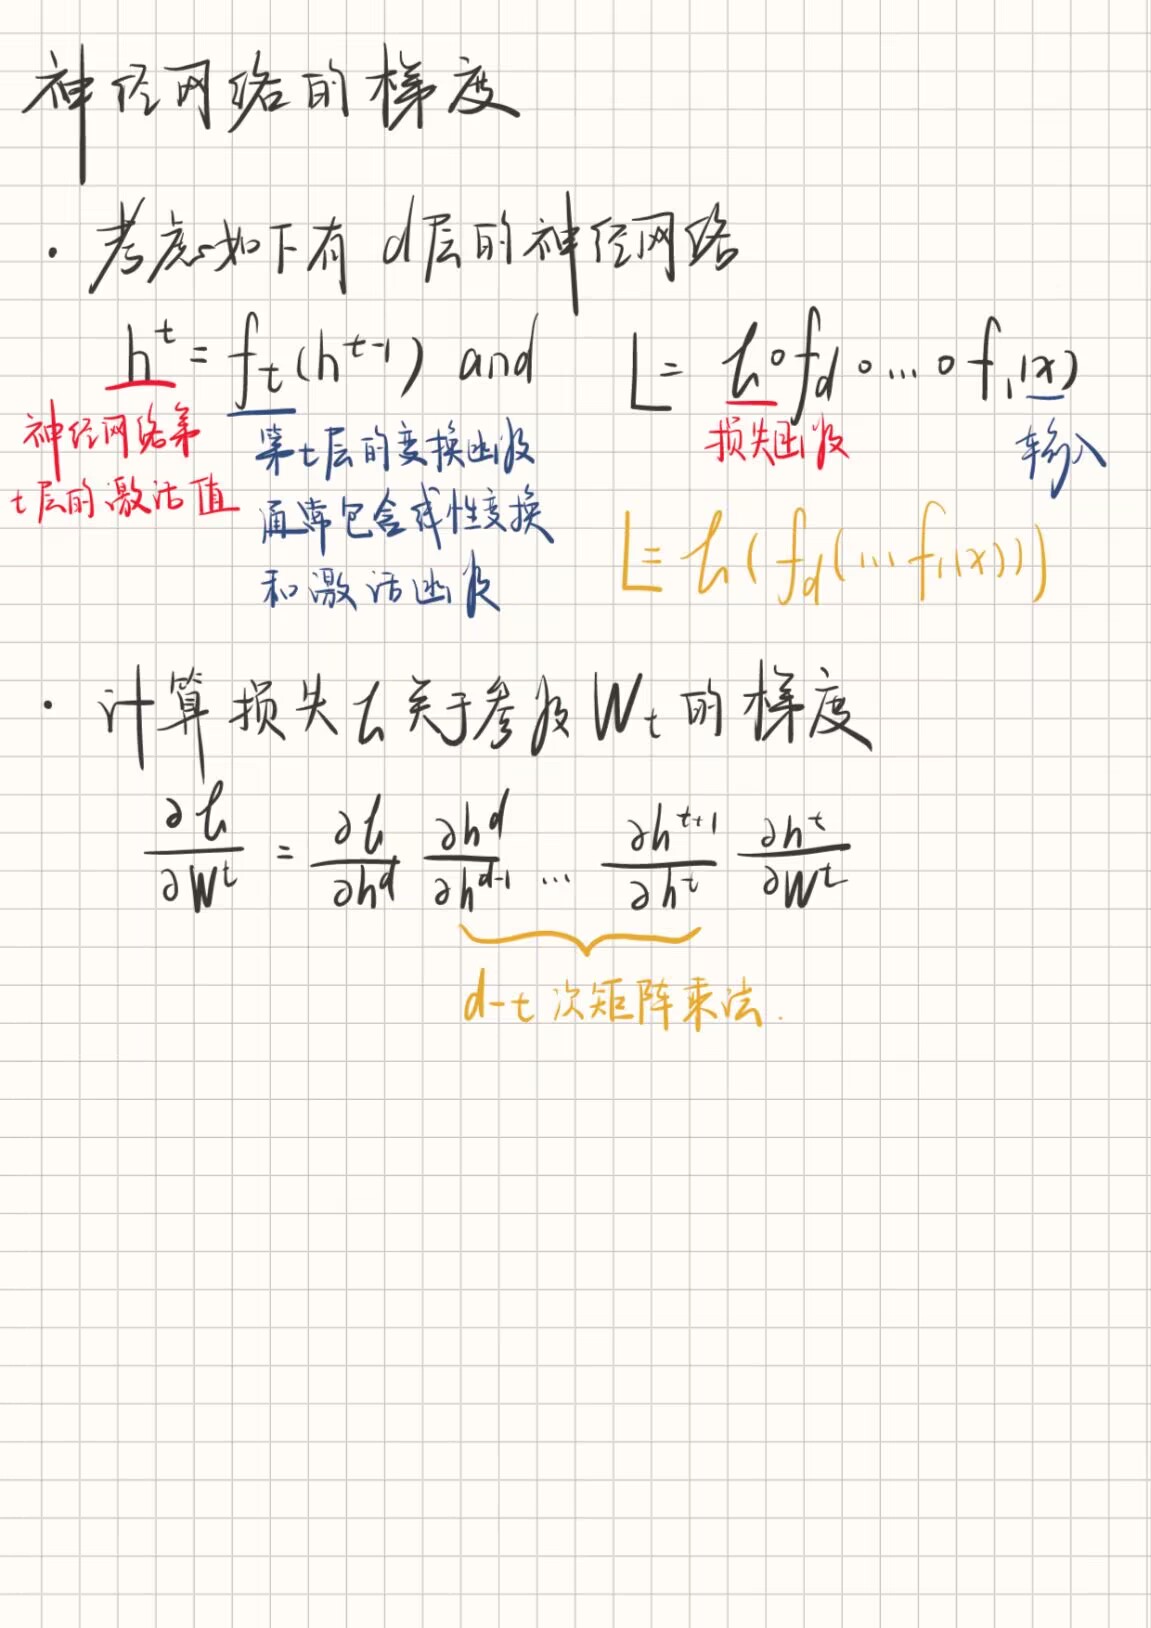 神经网络的梯度
· 考虑如下有 d层的神经网络
h^t = f_t(h^{t-1}) and L = ℓ∘f_d∘...∘f_1(x)
神经网络第
t层的激活值
第t层的变换函数
通常包含线性变换
和激活函数
损失函数
输入
L = ℓ(f_d(...f_1(x)))
· 计算损失ℓ关于参数W_t的梯度
∂ℓ/∂W^t = ∂ℓ/∂h^d ∂h^d/∂h^{d-1} ... ∂h^{t+1}/∂h^t ∂h^t/∂W^t
d-t 次矩阵乘法.